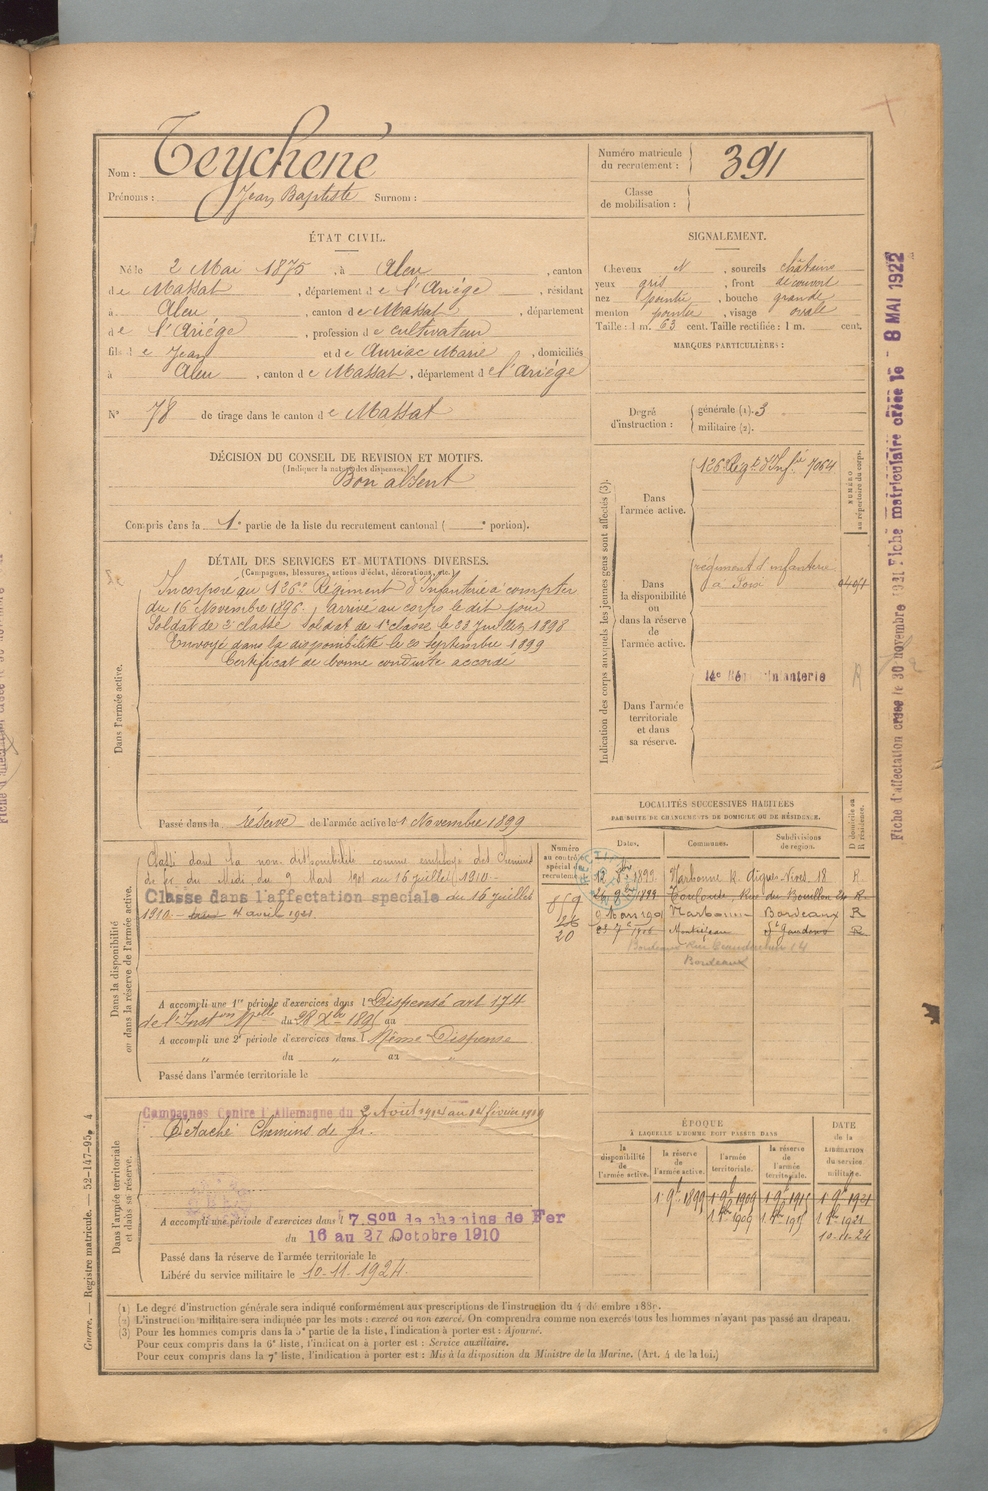 Nom : Teychené
Prénoms : Jean Baptiste Surnom :
Numéro matricule du recrutement : 391
Classe de mobilisation :
ÉTAT CIVIL.
Né le 2 Mai 1875, à Aleu, canton
de Massat, département de l'Ariége, résidant
à Aleu, canton de Massat, département
de l'Ariége, profession de cultivateur
fils de Jean et de Auriac Marie, domiciliés
à Aleu, canton de Massat, département de l'Ariége
N° 78 de tirage dans le canton de Massat
SIGNALEMENT.
Cheveux N, sourcils châtains
yeux gris, front découvert
nez pointu, bouche grande
menton pointu, visage ovale
Taille : 1 m. 63 cent. Taille rectifiée : 1 m. cent.
MARQUES PARTICULIÈRES :
Degré d'instruction : générale (1). 3
militaire (2).
DÉCISION DU CONSEIL DE REVISION ET MOTIFS.
(Indiquer la nature des dispenses.)
Bon absent
Compris dans la 1e partie de la liste du recrutement cantonal ( e portion).
DÉTAIL DES SERVICES ET MUTATIONS DIVERSES.
(Campagnes, blessures, actions d'éclat, décorations, etc.)
Dans l'armée active.
Incorporé au 126e Régiment d'Infanterie à compter
du 16 Novembre 1896, arrivé au corps le dit jour
Soldat de 2e classe Soldat de 1e classe le 22 Juillet 1898
Envoyé dans la disponibilité le 20 septembre 1899
Certificat de bonne conduite accordé
Passé dans la réserve de l'armée active le 1 Novembre 1899
Indication des corps auxquels les jeunes gens sont affectés (3).
NUMÉRO au répertoire du corps.
Dans l'armée active. 126e Régt d'Infie 7064
Dans la disponibilité ou dans la réserve de l'armée active.
régiment d'infanterie
à
Dans l'armée territoriale et dans sa réserve.
14e Rég Infanterie
R
Dans la disponibilité ou dans la réserve de l'armée active.
Classé dans la non disponibilité comme employé des Chemins
de fer du Midi, du 9 Mars 1901 au 15 juillet 1910
Classé dans l'affectation spéciale du 16 juillet
1910 4 avril 1921
A accompli une 1re période d'exercices dans l Dispensé art 174
de l'Inston Melle du 28 Xbre 1895 au
A accompli une 2e période d'exercices dans l Même Dispense
du " au "
Passé dans l'armée territoriale le
Numéro au contrôle spécial du recrutement
859
126
20
LOCALITÉS SUCCESSIVES HABITÉES
PAR SUITE DE CHANGEMENTS DE DOMICILE OU DE RÉSIDENCE.
Dates. Communes. Subdivisions de région. D domicile ou R résidence.
12 1899 Narbonne R. Aigues Vives, 18 R
9bre 1899 Toulouse, Rue du Bouillon 24 R
9 Mars 1901 Narbonne Bordeaux R
1906 Montréjeau St Gaudens R
Bordeaux Rue 14
Bordeaux
Dans l'armée territoriale et dans sa réserve.
Campagnes Contre l'Allemagne du 2 Août 1914 au 14 février 1919
Détaché Chemins de fer.
A accompli une période d'exercices dans l 7. Son de chemins de Fer
du 16 au 27 Octobre 1910
Passé dans la réserve de l'armée territoriale le
Libéré du service militaire le 10-11-1924
ÉPOQUE
À LAQUELLE L'HOMME DOIT PASSER DANS
la disponibilité de l'armée active. la réserve de l'armée active. l'armée territoriale. la réserve de l'armée territoriale. DATE de la LIBÉRATION du service militaire.
1 9bre 1899 1 9bre 1909 1 9bre 1915 1 9bre 1921
1 1909 1 1915 1 1921
10-11-24
(1) Le degré d'instruction générale sera indiqué conformément aux prescriptions de l'instruction du 4 décembre 1889.
(2) L'instruction militaire sera indiquée par les mots : exercé ou non exercé. On comprendra comme non exercés tous les hommes n'ayant pas passé au drapeau.
(3) Pour les hommes compris dans la 5e partie de la liste, l'indication à porter est : Ajourné.
Pour ceux compris dans la 6e liste, l'indication à porter est : Service auxiliaire.
Pour ceux compris dans la 7e liste, l'indication à porter est : Mis à la disposition du Ministre de la Marine. (Art. 4 de la loi.)
Guerre. — Registre matricule. — 52-147-95. 4
Fiche d'affectation créée le 30 novembre 1921 Fiche matriculaire créée le - 8 MAI 1922